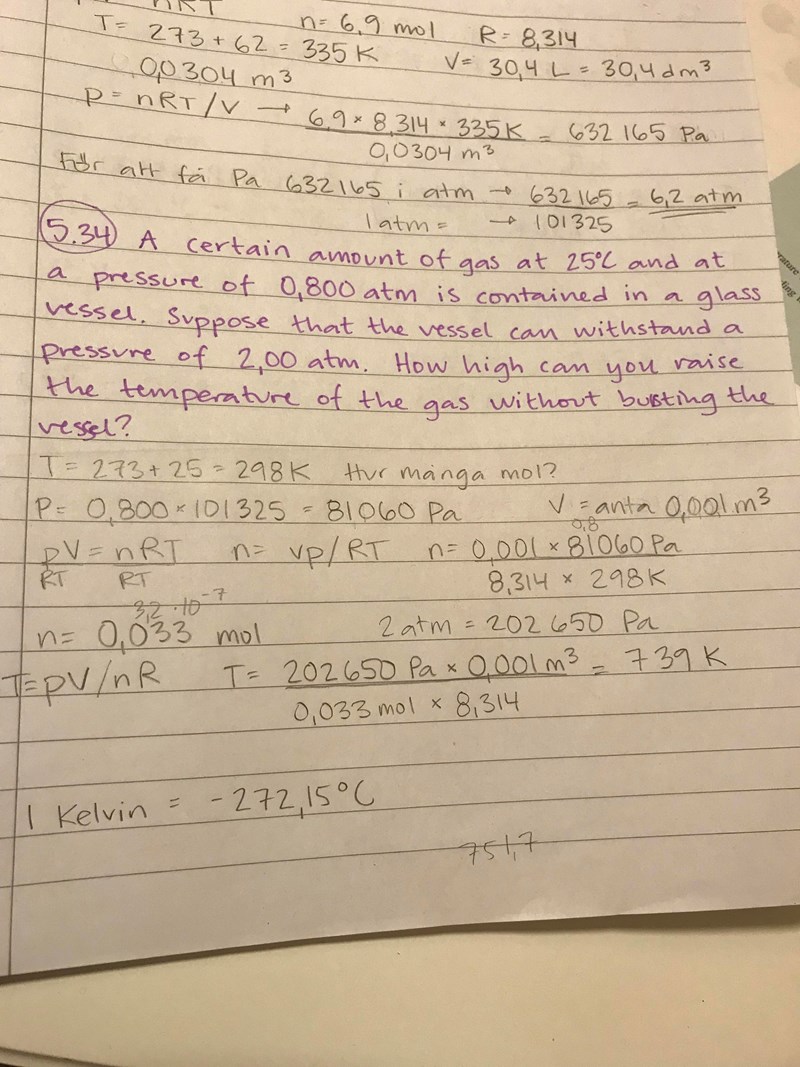 nRT
T= 273+62 = 335 K n= 6,9 mol R= 8,314
0,0304 m³ V= 30,4 L = 30,4 dm³
P= nRT/V → 6,9 × 8,314 × 335K = 632 165 Pa
0,0304 m³
För att få Pa 632165 i atm → 632165 = 6,2 atm
1 atm = → 101325
5.34) A certain amount of gas at 25°C and at
a pressure of 0,800 atm is contained in a glass
vessel. Suppose that the vessel can withstand a
pressure of 2,00 atm. How high can you raise
the temperature of the gas without busting the
vessel?
T= 273+25 = 298K Hur många mol?
P= 0,800 × 101325 = 81060 Pa V = anta 0,001 m³
0,8
pV = nRT n= vp/RT n= 0,001 × 81060 Pa
RT RT 8,314 × 298K
3,2 · 10⁻⁷
n= 0,033 mol 2 atm = 202 650 Pa
T=pV/nR T= 202650 Pa × 0,001 m³ = 739 K
0,033 mol × 8,314
1 Kelvin = -272,15°C
751,7